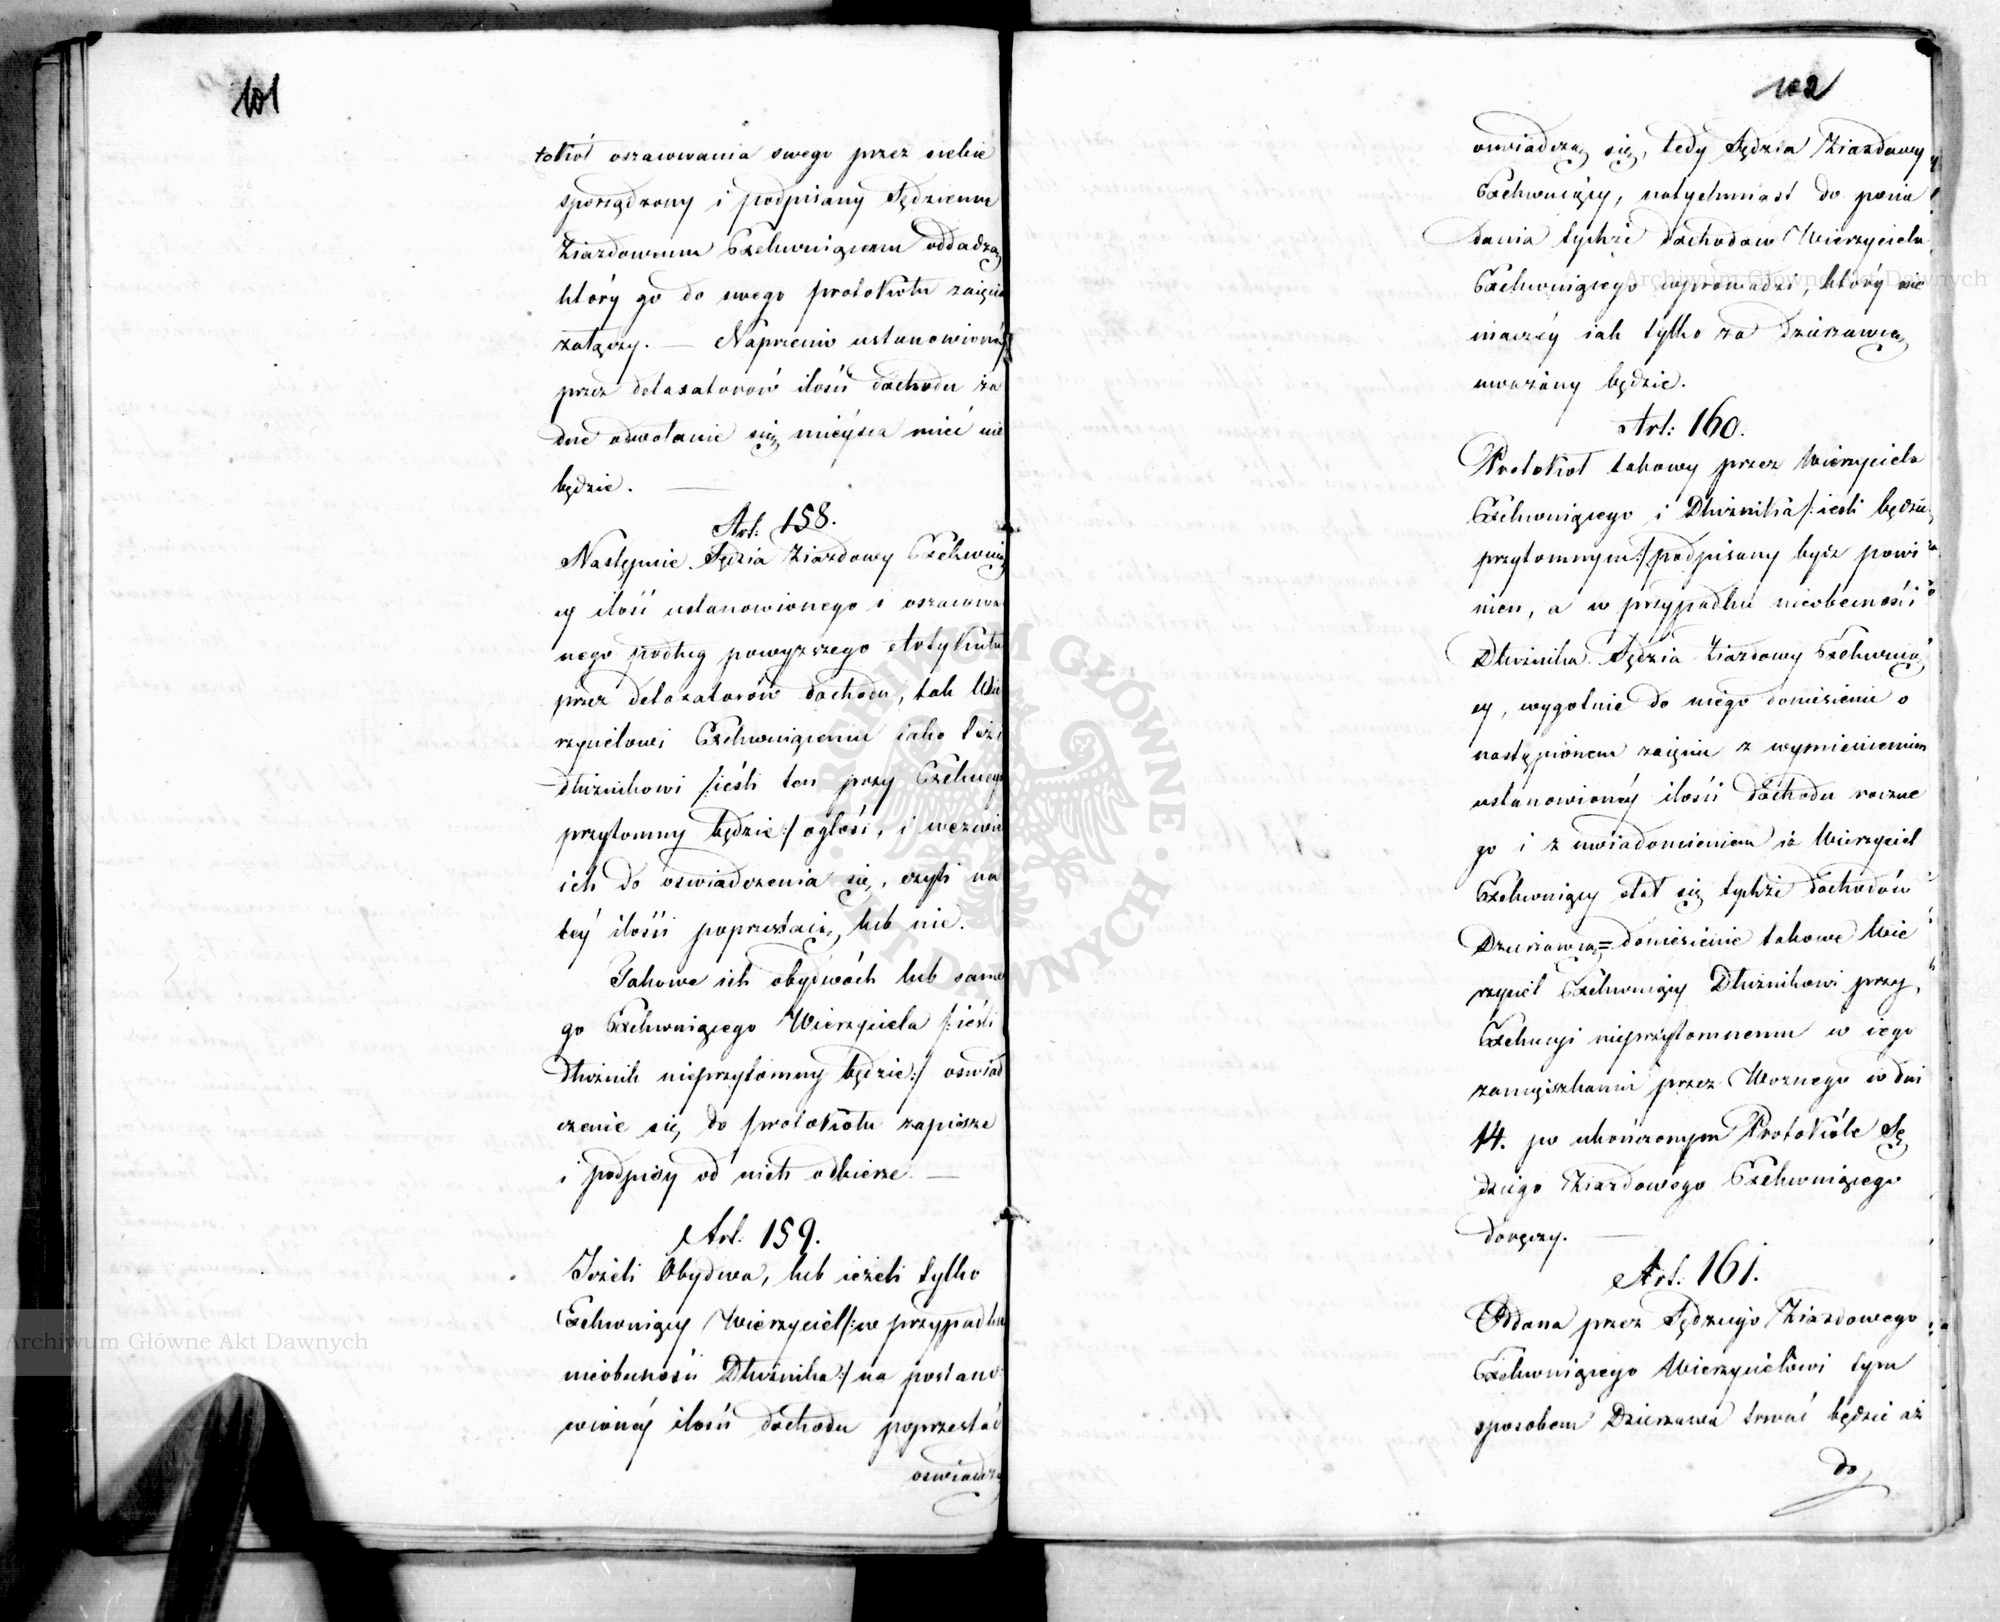 101
tokół oszacowania swego przez siebie
sporządzony i podpisany Sędziemu
Ziazdowemu Exekwuiącemu oddadzą
który go do swego protokółu zaięcia
załączy. — Naprzeciw ustanowionéy
przez detaxatorów ilości dochodu ża
dne odwołanie się mieysca mieć nie
będzie. —
Art: 158.
Następnie Sędzia Ziazdowy Exekwuią
cy ilość ustanowionego i oszacowa
nego podług powyższego Artykułu
przez detaxatorów dochodu, tak Wie
rzycielowi Exekwuiącemu iako też i
dłużnikowi /:ieśli ten przy Exekucyi
przytomny będzie:/ ogłosi, i wezwie
ich do oswiadczenia się, czyli na
téy ilości poprzestaią, lub nie.
Takowe ich obydwóch lub same
go Exekwuiącego Wierzyciela /:ieśli
dłużnik nieprzytomny będzie:/ oswiad
czenie się do protokółu zapisze
i podpisy od nich odbierze. —
Art. 159.
Jeżeli Obydwa, lub ieżeli tylko
Exekwuiący Wierzyciel /:w przypadku
nieobecności Dłużnika:/ na postano
wionéy ilości dochodu poprzestać
oswiadczą
102
oswiadczą się, tedy Sędzia Ziazdowy
Exekwuiący, natychmiast do posia
dania tychże dochodów Wierzyciela
Exekwuiącego wprowadzi, który nie
inaczéy iak tylko za dzierżawcę
uważany będzie.
Art: 160.
Protokół takowy przez Wierzyciela
Exekwuiącego i Dłużnika /:ieśli będzie
przytomnym:/ podpisany bydź powi
nien, a w przypadku nieobecności
Dłużnika Sędzia Ziazdowy Exekwuią
cy, wygotuie do niego doniesienie o
nastąpionem zaięciu z wymienieniem
ustanowionéy ilości dochodu roczne
go i z uwiadomieniem iż Wierzyciel
Exekwuiący stał się tychże dochodów
Dzierżawcą = doniesienie takowe Wie
rzyciel Exekwuiący Dłużnikowi przy
Exekucyi nieprzytomnemu w iego
zamięszkaniu przez Woznego w dni
14. po ukończonym Protokóle Sę
dziego Ziazdowego Exekwuiącego
doręczy. —
Art: 161.
Oddana przez Sędziego Ziazdowego
Exekwuiącego Wierzycielowi tym
sposobem Dzierżawa trwać będzie aż
do
Archiwum Główne Akt Dawnych
Archiwum Główne Akt Dawnych
ARCHIWUM GŁÓWNE AKT DAWNYCH